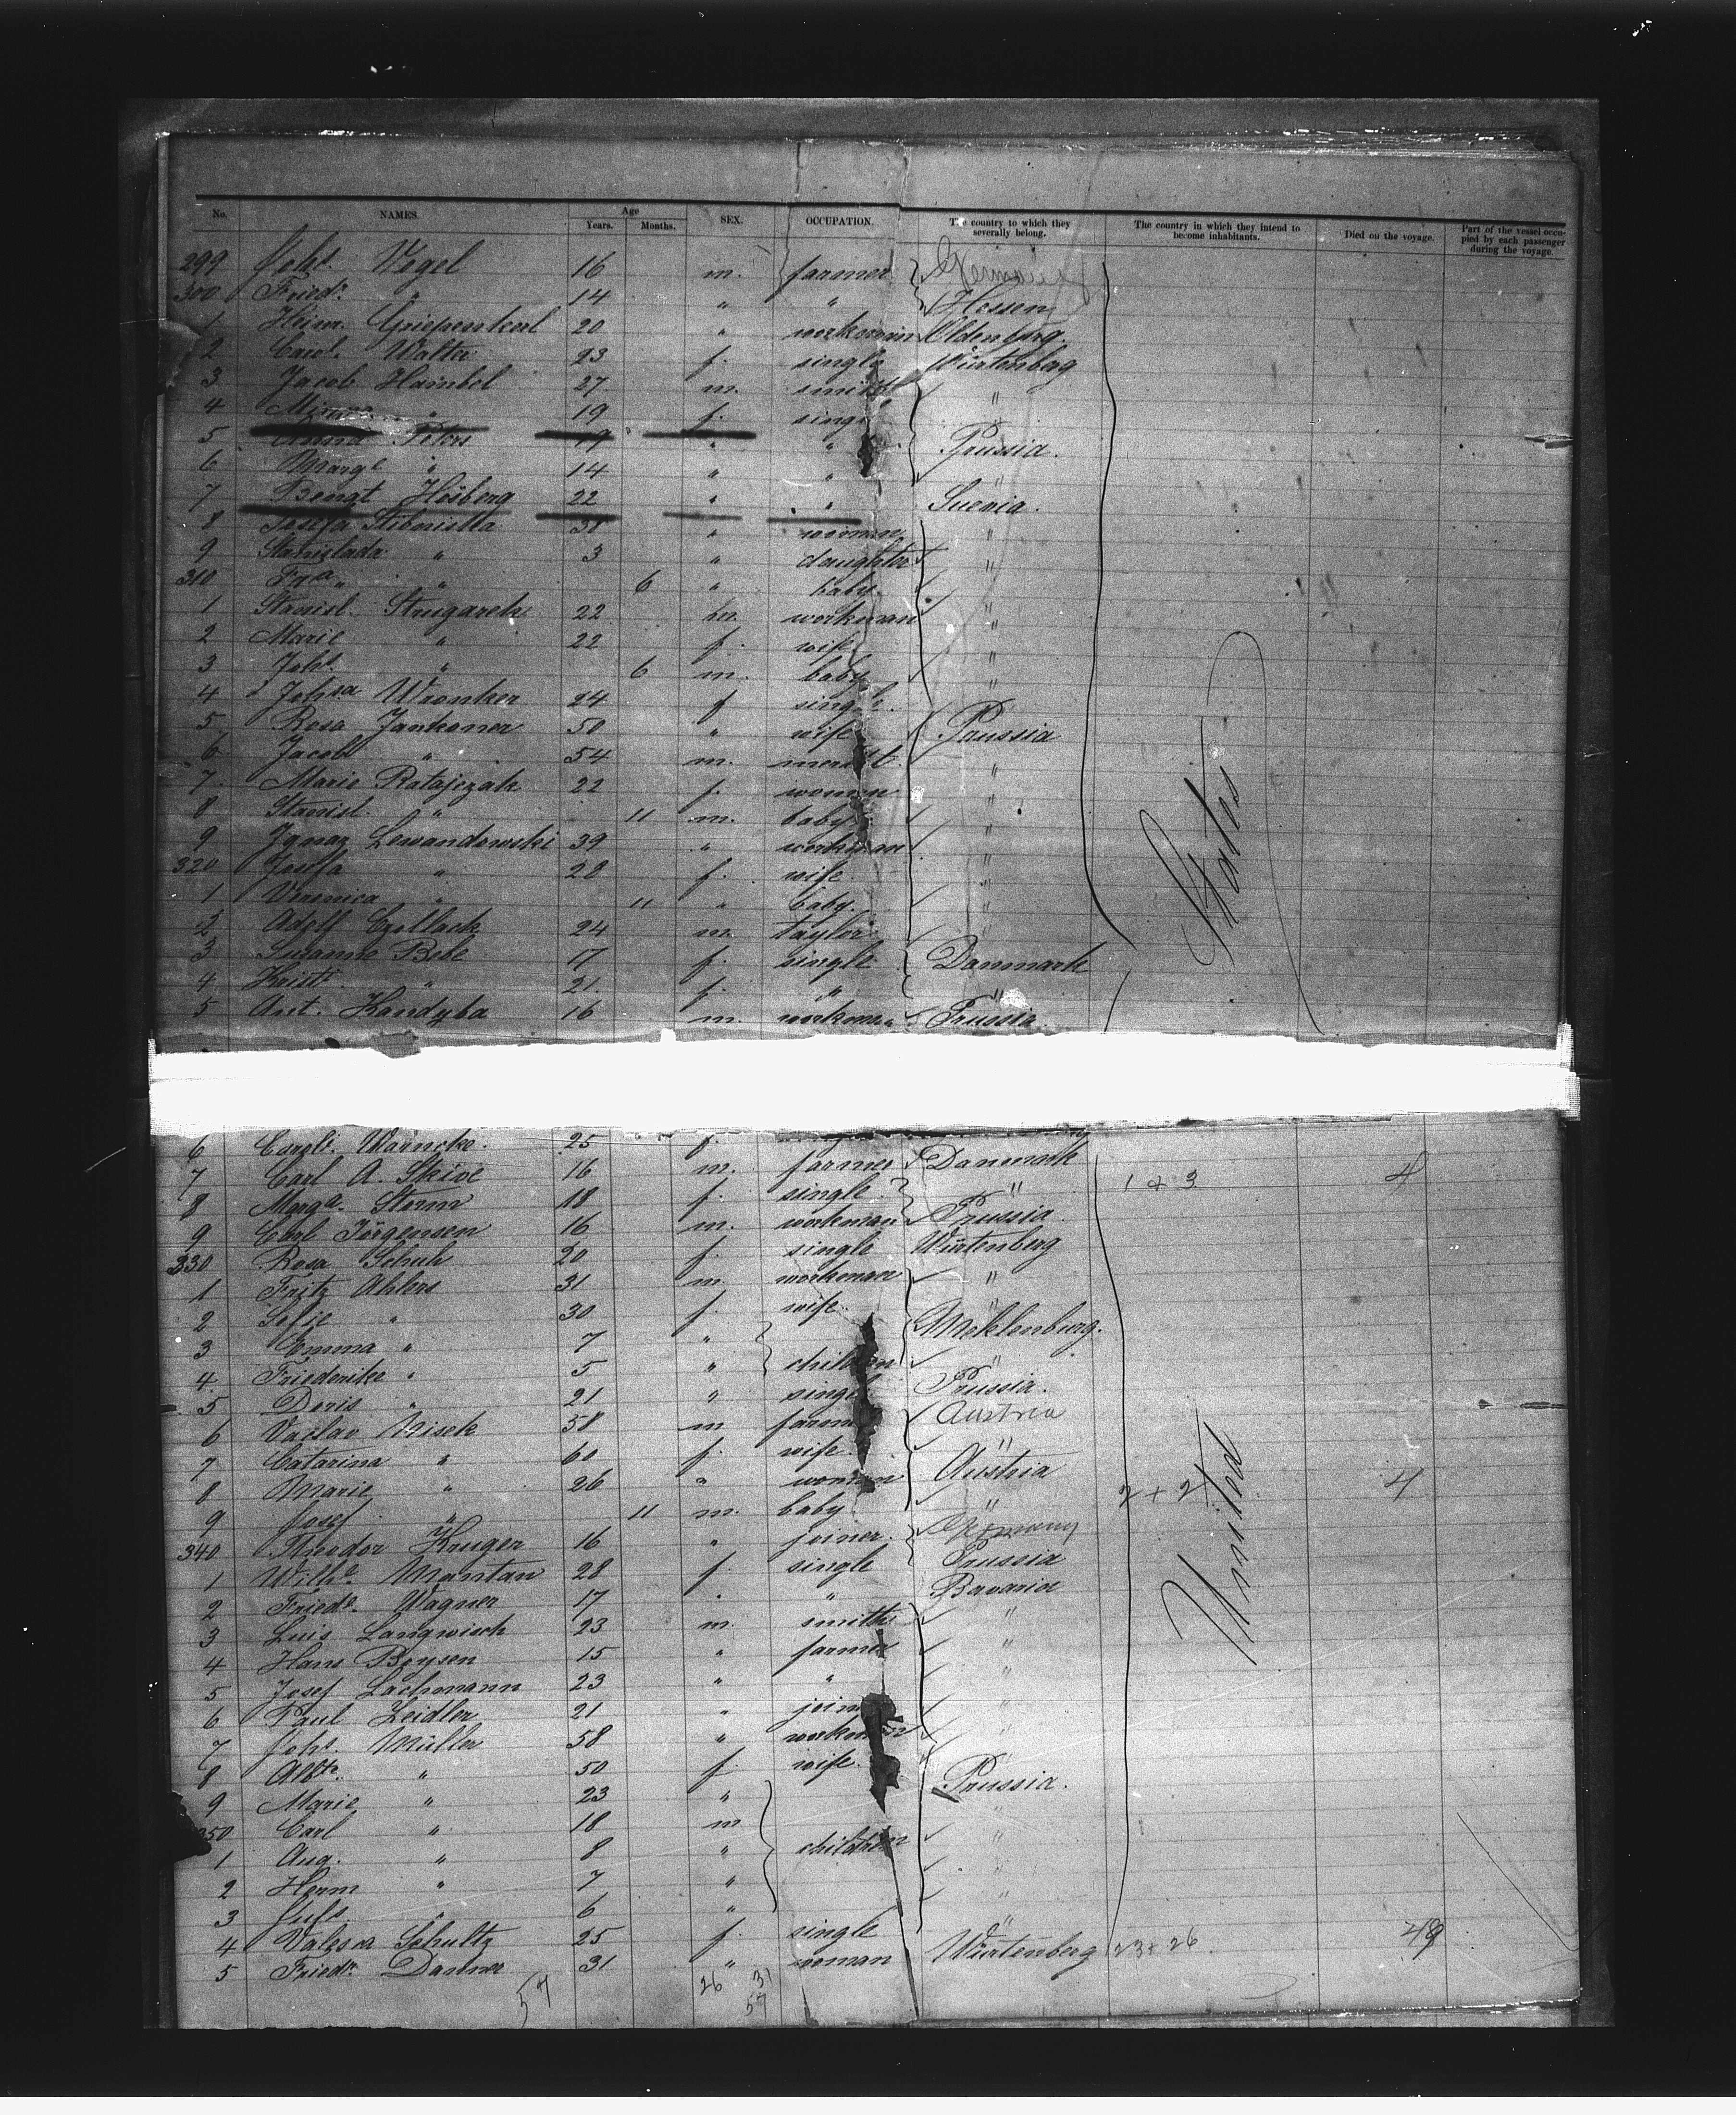 No. NAMES. Age Years. Months. SEX. OCCUPATION. The country to which they severally belong. The country in which they intend to become inhabitants. Died on the voyage. Part of the vessel occupied by each passenger during the voyage.
299 Johs. Vogel 16 m. farmer Germany
300 Friedr. " 14 " " Hessen
1 Heinr. Griepenkerl 20 " workman Oldenburg.
2 Carol. Walter 23 f. single Würtenberg
3 Jacob Haimbel 27 m. smith "
4 Minna " 19 f. single
5 Peters 19 " " Prussia.
6 Margt " 14 " " "
7 Bengt Hösberg 22 " " Suecia.
8 Josefa 38 " woman "
9 Stanislada " 3 " daughter "
310 Fra " 6 " baby.
1 Stanisl. Strugarek 22 m. workman "
2 Marie " 22 f. wife "
3 Johs. " 6 m. baby "
4 Johsa Wronker 24 f single.
5 Rosa Jankoner 50 " wife Prussia
6 Jacob " 54 m. "
7 Marie Ratajczak 22 f. woman "
8 Stanisl. " 11 m. baby "
9 Ignaz Lewandowski 39 " workman
320 Josefa " 28 f. wife "
1 Veronica " 11 " baby. "
2 Adolf Czollack 24 m. taylor "
3 Susanne Bebe 17 f. single Danmark
4 Kristr. " 21 f. " "
5 Ant. Kandyba 16 m. workman Prussia.
States
6 Carol. Warncke. 25 f.
7 Carl A. Skive 16 m. farmer Danmark
8 Marga. Storm 18 f. single " 1 + 3 4
9 Carl Jörgensen 16 m. workman Prussia
330 Rosa Schuh 20 f. single Würtenberg
1 Fritz Ahlers 31 m workman "
2 Sofie " 30 f. wife. "
3 Emma " 7 " Meklenburg.
4 Friederike " 5 " children "
5 Doris " 21 " single Prussia.
6 Vaclav Misek 58 m farmer Austria
7 Catarina " 60 f. wife "
8 Marie " 26 " woman Austria
9 Josef " 11 m. baby " 2 + 2 4
340 Theodor Kruger 16 " joiner. Germany
1 Wilhe. Mantan 28 f. single Prussia
2 Friede. Wagner 17 " " Bavaria
3 Luis Langwisch 23 m. smith "
4 Hans Boysen 15 " farmer "
5 Josef Lachmann 23 " " "
6 Paul Zeidler 21 " joiner "
7 Johs. Müller 58 " workman "
8 " 50 f. wife. "
9 Marie " 23 " Prussia.
350 Carl " 18 m "
1 Aug. " 8 " children "
2 Herm " 7 " "
3 Juls. " 6 " "
4 Valesca Schultz 25 f. single "
5 Friedr. 31 " woman Würtenberg 23 + 26 49
United
57 26 31
57